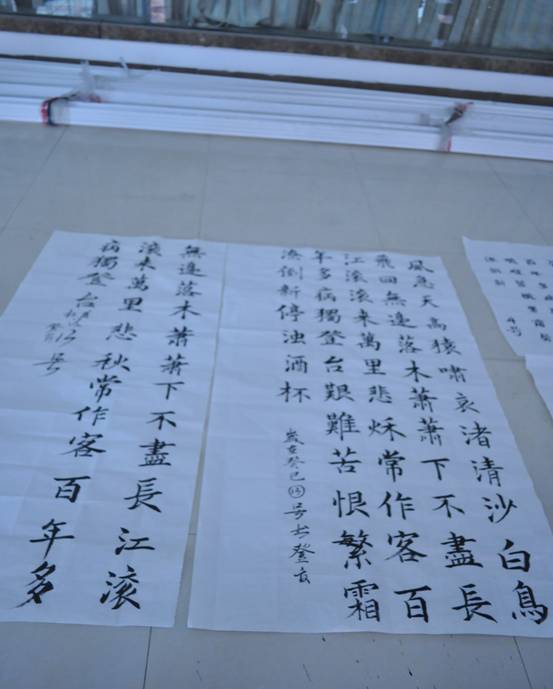 風急天高猿嘯哀渚清沙白鳥
飛回無邊落木蕭蕭下不盡長
江滾滾來萬里悲秋常作客百
年多病獨登台艱難苦恨繁霜
潦倒新停浊酒杯
歲在癸巳⑮号书登高
無邊落木蕭蕭下不盡長江滾
滾來萬里悲秋常作客百年多
病獨登台
号